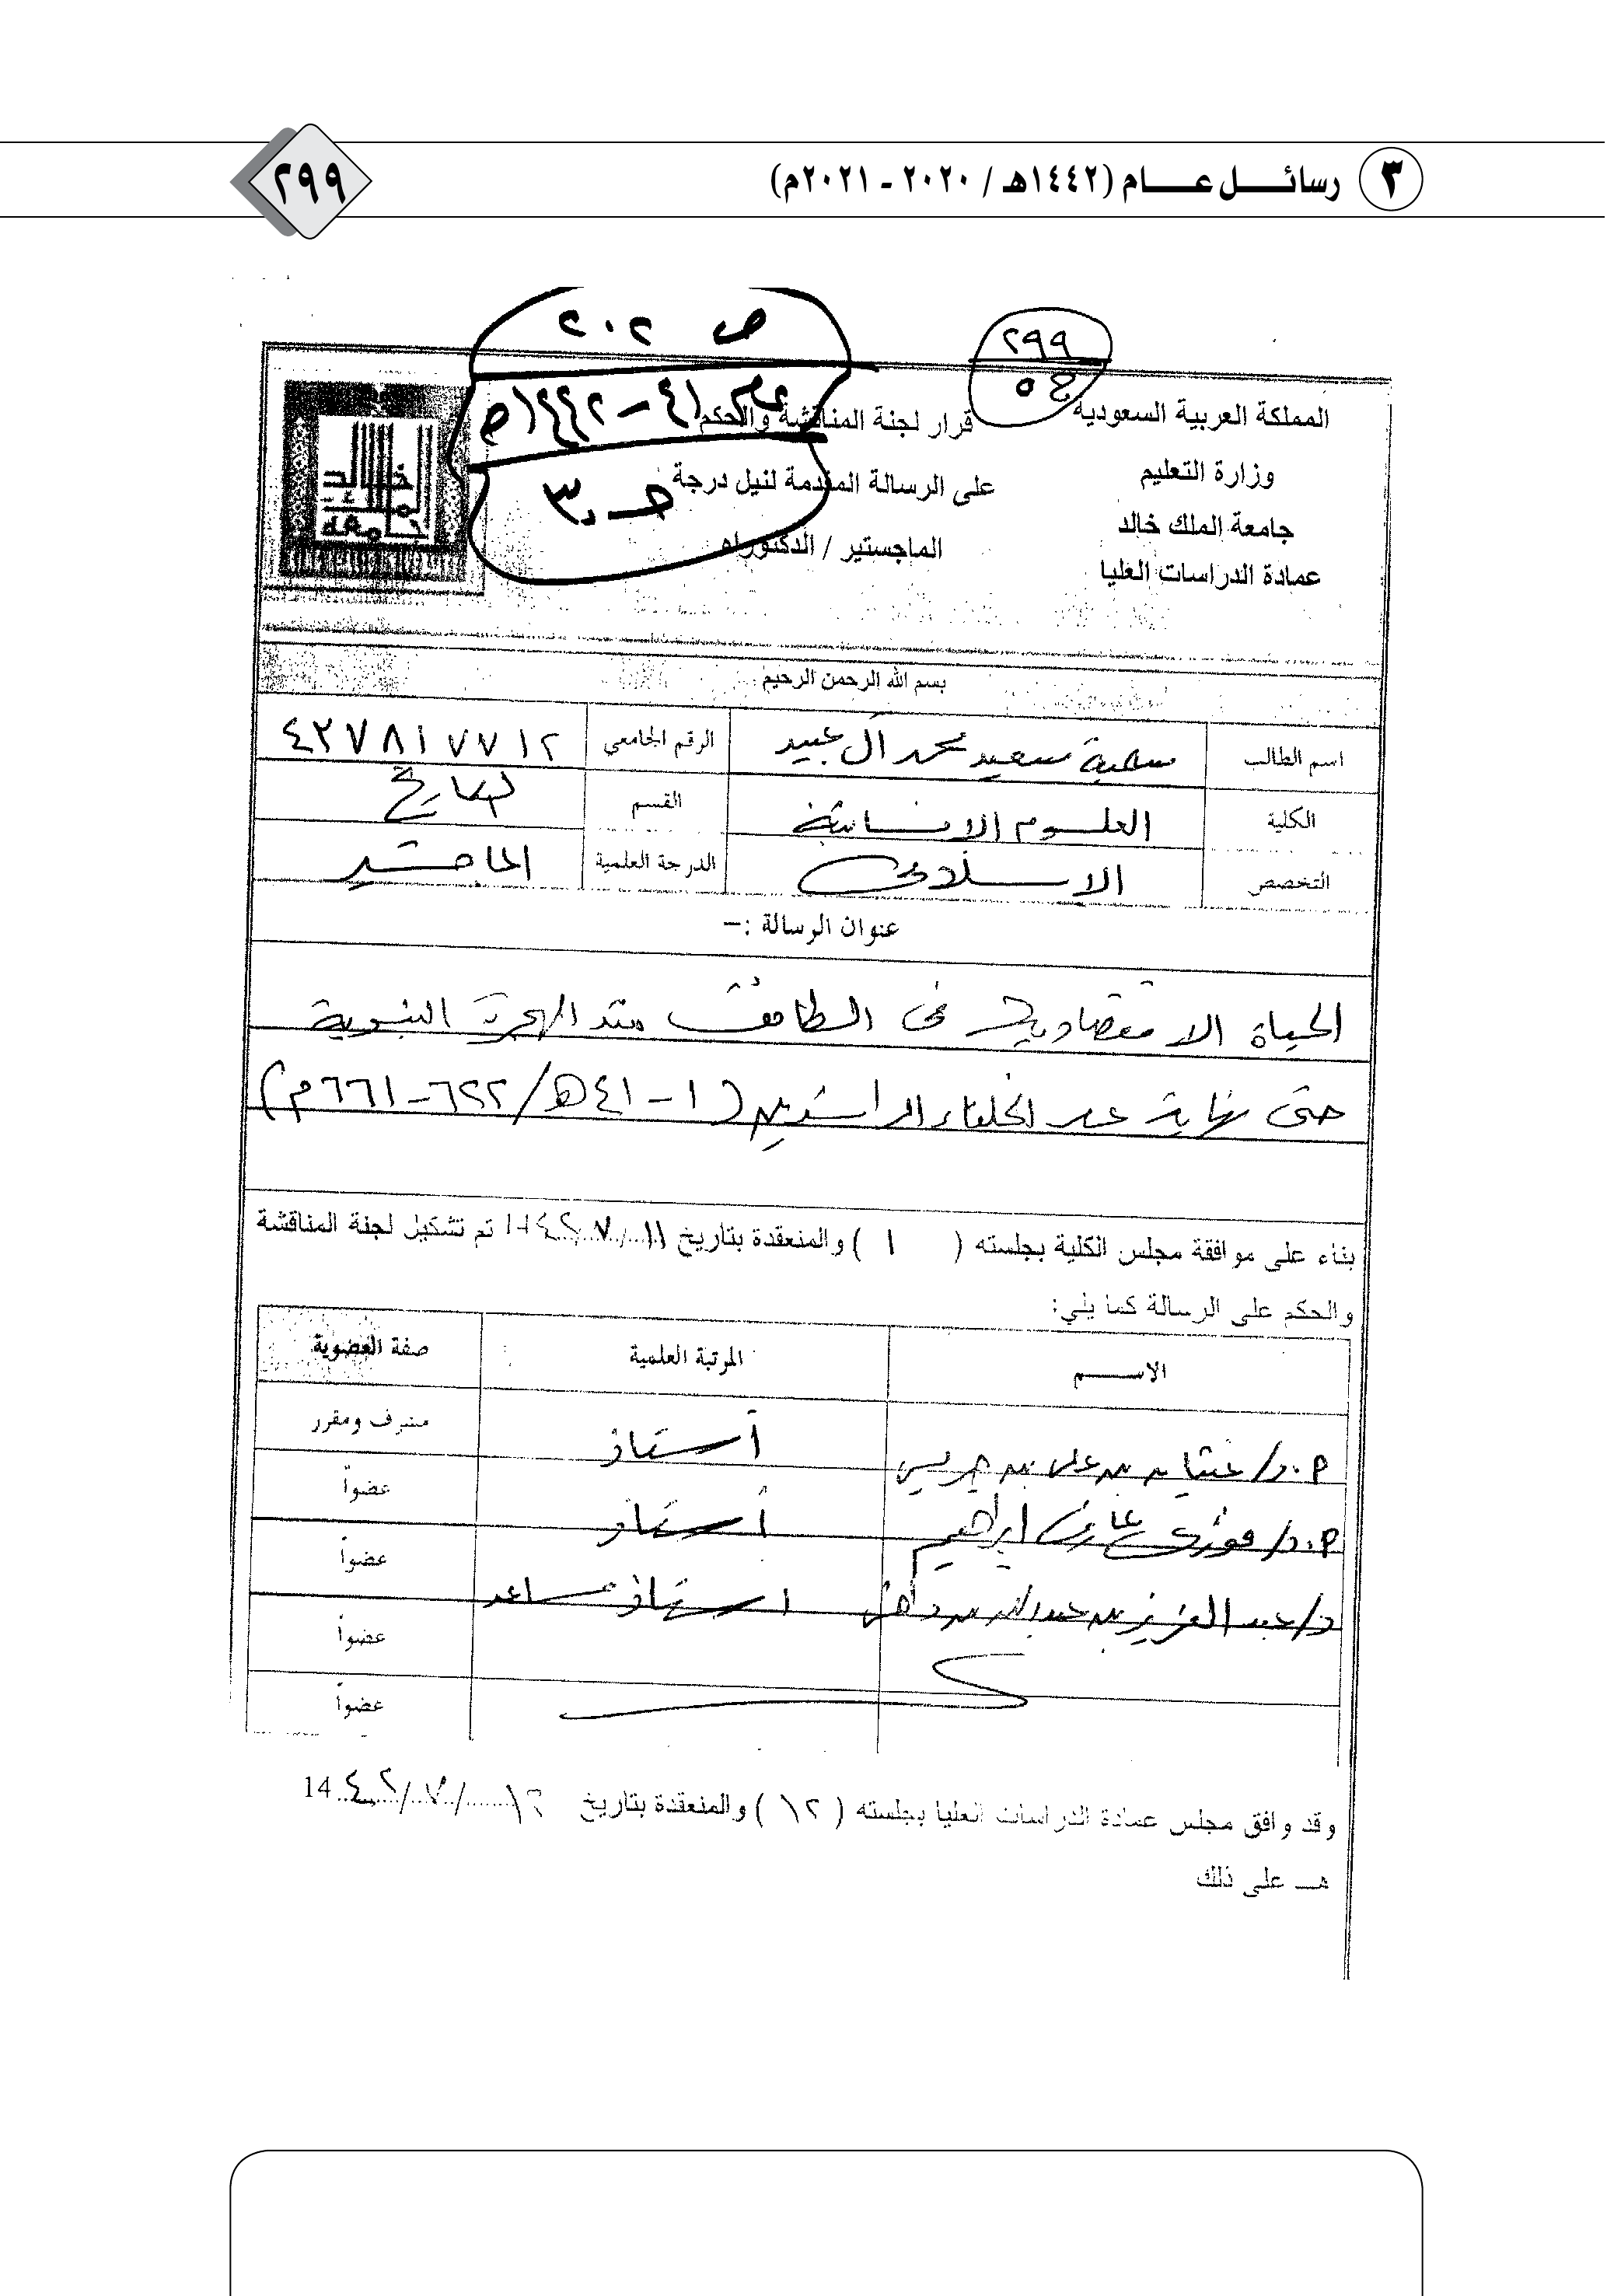 ٣ رسائل عام (١٤٤٢هـ / ٢٠٢٠ - ٢٠٢١م)
٢٩٩
ص ٢٠٢
٢٩٩
ج ٥
٤١ – ١٤٤٢هـ
المملكة العربية السعودية
وزارة التعليم
جامعة الملك خالد
عمادة الدراسات العليا
قرار لجنة المناقشة والحكم
على الرسالة المقدمة لنيل درجة
الماجستير / الدكتوراه
جامعة الملك خالد
بسم الله الرحمن الرحيم
اسم الطالب سمية سعيد محمد آل عبيد الرقم الجامعي ٤٣٧٨١٧٧١٢
الكلية العلوم الانسانية القسم التاريخ
التخصص الاسلامي الدرجة العلمية الماجستير
عنوان الرسالة :–
الحياة الاقتصادية في الطائف منذ الهجرة النبوية
حتى نهاية عهد الخلفاء الراشدين (١ – ٤١هـ/ ٦٢٢–٦٦١م)
بناء على موافقة مجلس الكلية بجلسته ( ١ ) والمنعقدة بتاريخ ١١/٧/١٤٤٢ تم تشكيل لجنة المناقشة
والحكم على الرسالة كما يلي:
الاسم المرتبة العلمية صفة العضوية
أ.د/ غيثان بن علي بن جريس أستاذ مشرف ومقرر
أ.د/ فوزي عارف ابراهيم أستاذ عضواً
د/ عبد العزيز بن عبدالله بن داهش استاذ مساعد عضواً
عضواً
عضواً
وقد وافق مجلس عمادة الدراسات العليا بجلسته ( ١٢ ) والمنعقدة بتاريخ ١٦/٧/١٤٤٢
هـ على ذلك